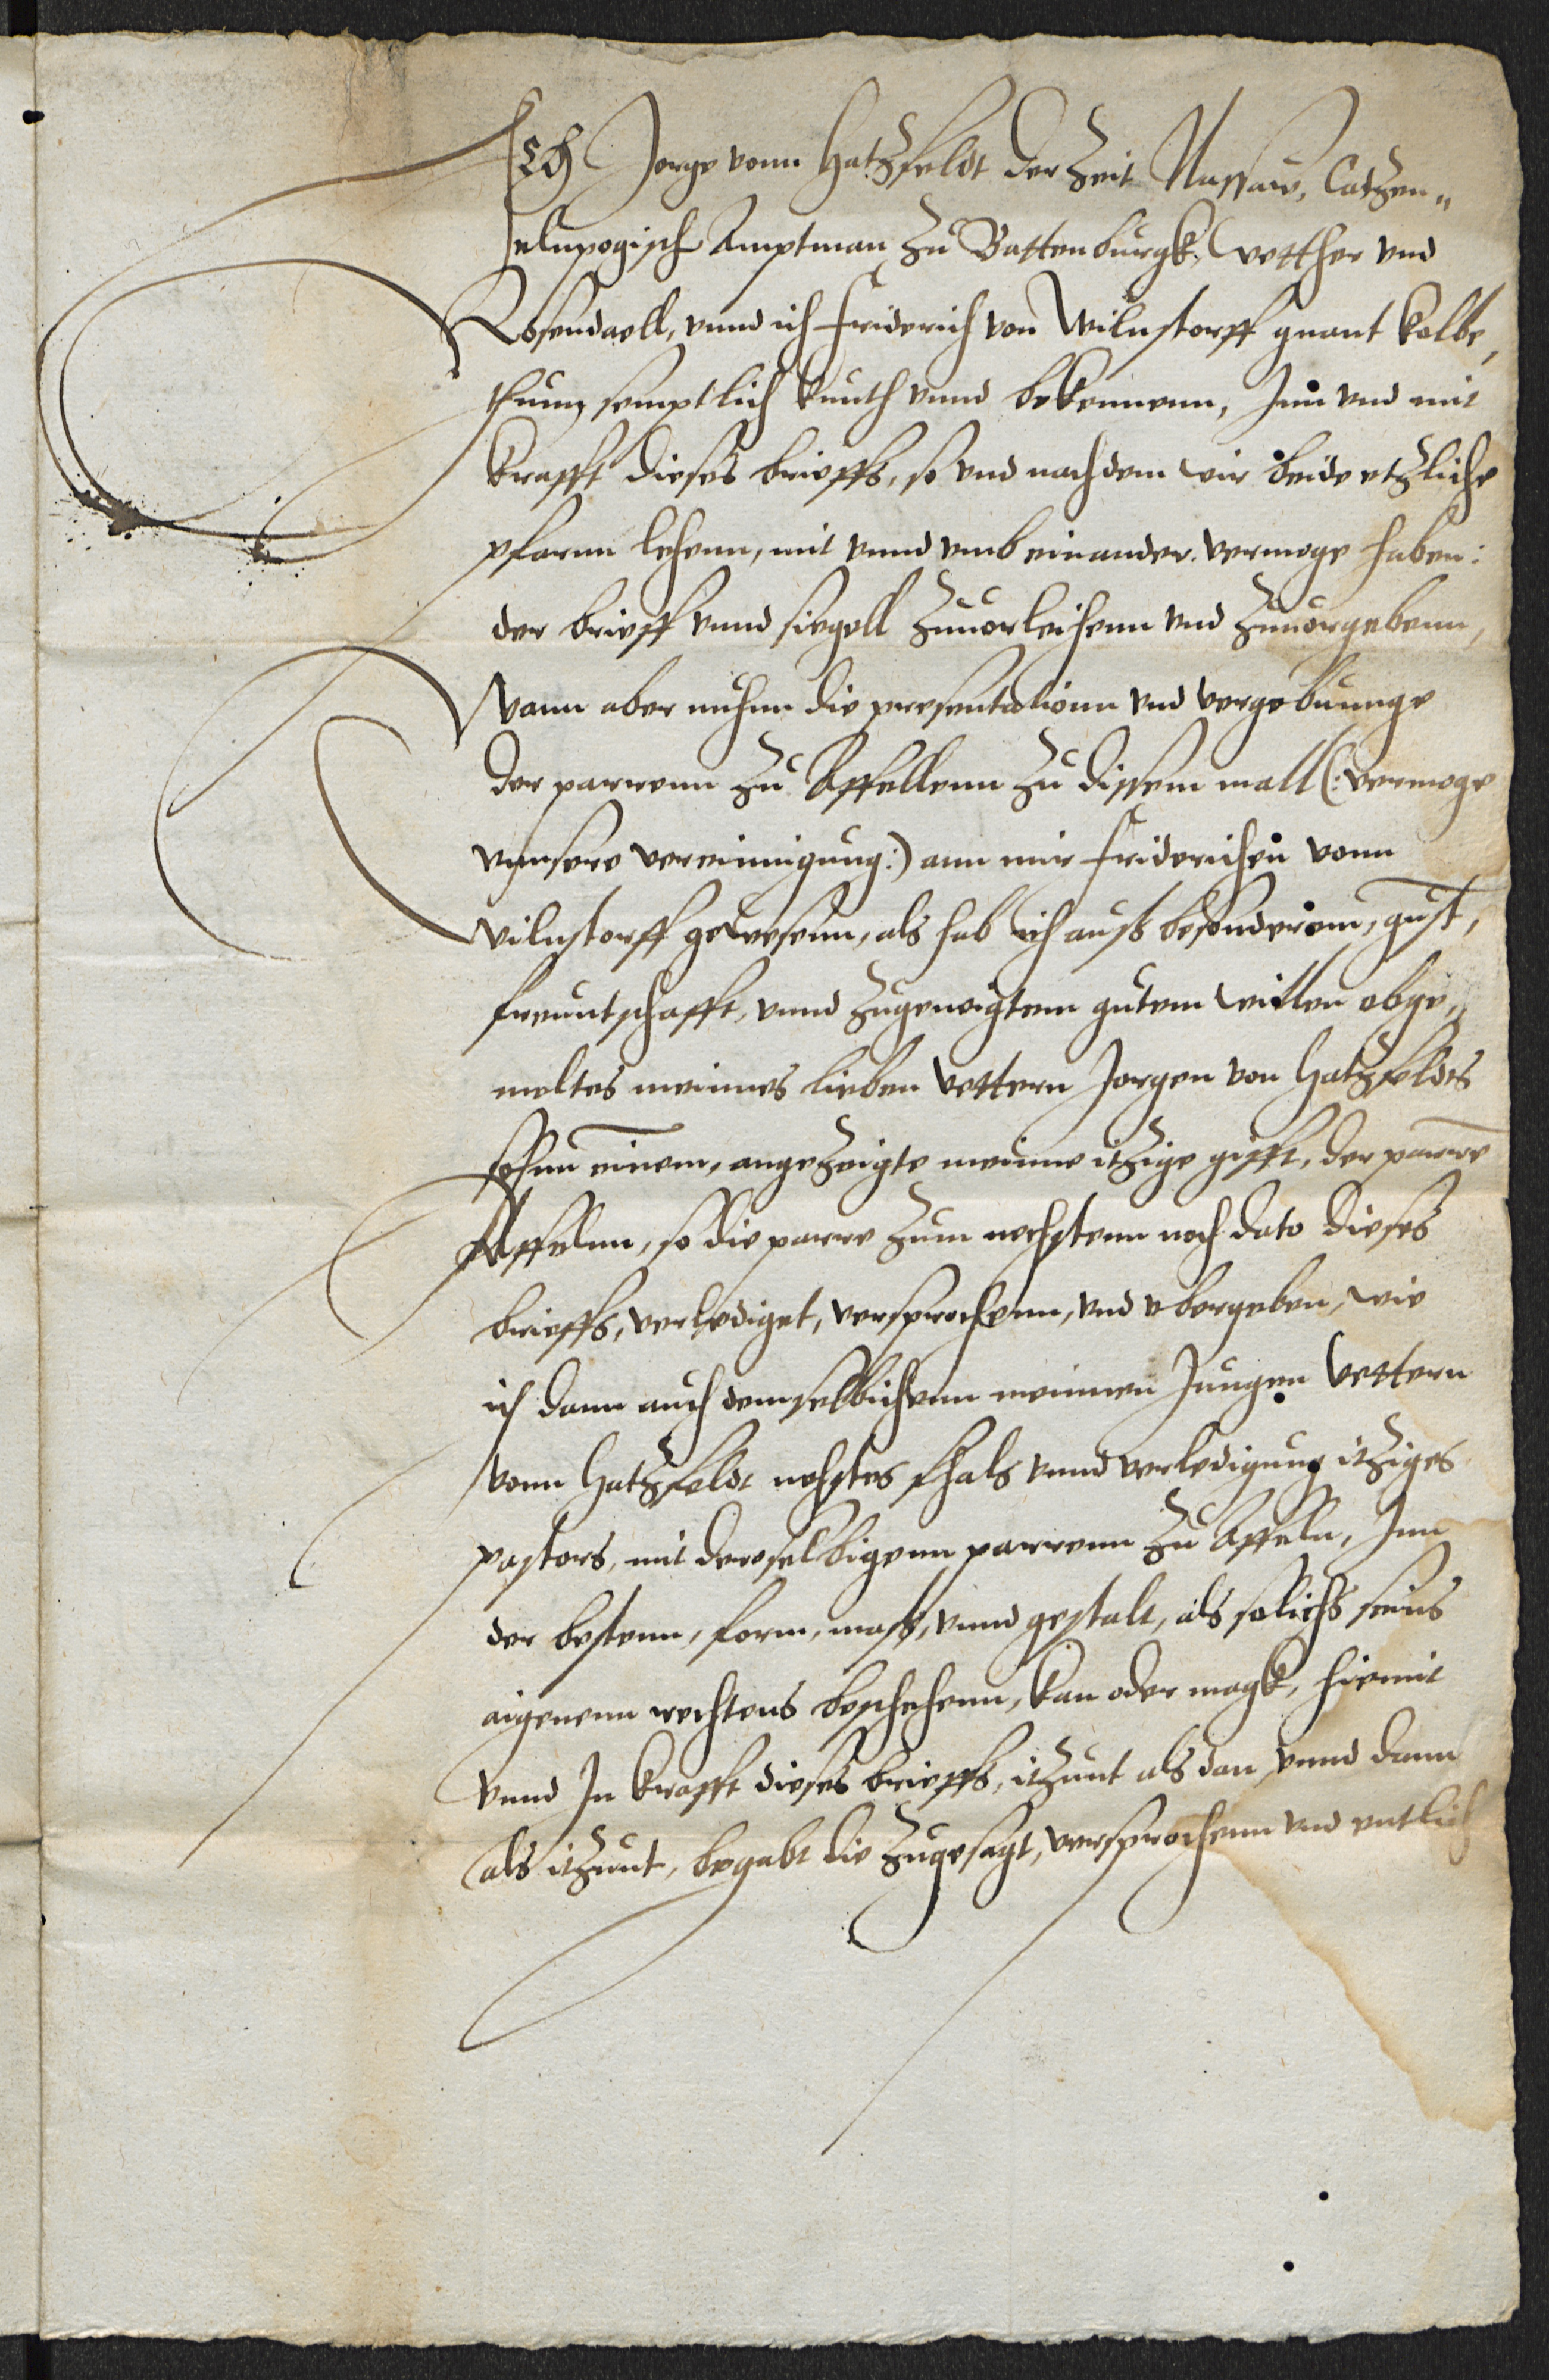 Ich Jorge vonn Hatzfeldt der Zeit Nassaw, Catzen„
elnpogisch Amptman zu Battenburgk, Wetther und
Rosendaell, unnd ich Friderich von Wilnstorff gnant Kolbe,
thunn semptlich kunth unnd bekennenn, Inn und mit
krafft dieses brieffs, so und nachdem wir beide etzliche
pfarnn lehenn, mit unnd umb einander, vermoge haben:
der brieff unnd siegell zuuorleihenn und zuuorgebenn,
Wann aber nuhnn die presentationn und vergebunnge
der parrenn zu Affellenn zu dissem mall (: vermoge
unnsere vereinnigung:) ann mir Friderichen vonn
Wilnstorff gewesenn, als hab ich auß besonderem, gust,
freuntschafft, unnd zugeneigtem gutem willen obge„
meltes meinnes lieben Vettern Jorgen von Hatzfeldts
sohnn einem, angezeigte meinne itzige gifft, der parre
Affelnn, so die parre zum nechstenn noch dato dieses
brieffs, verlediget, versprochenn, und ubergeben, wie
ich dann auch demselbichenn meinnen Jungen Vettern
vonn Hatzfeldt nechstes fhals unnd verledigung itziges
pastors, mit derselbigenn parrenn zu Affeln, Inn
der bestenn, form, maß, unnd gestalt, als solichs seins
aigenenn rechtens beschehenn, kan oder magk, hiemit
unnd In krafft dieses brieffs, itzunt als dan unnd dann
als itzunt, begabt die zugesagt, versprochenn und entlich